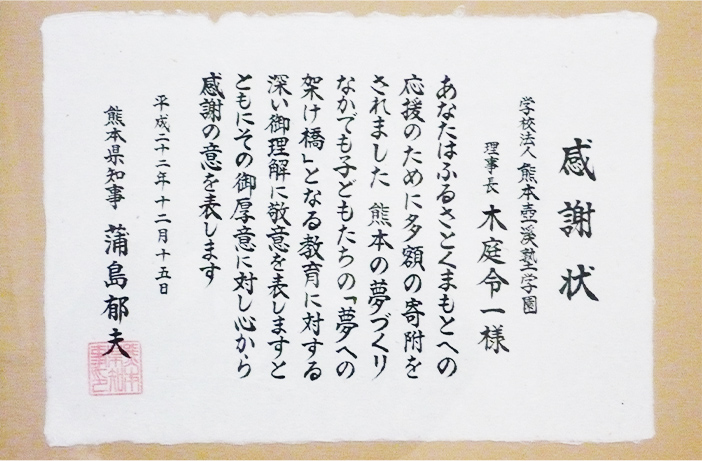 感謝状
学校法人 熊本壺溪塾学園
理事長 木庭令一様
あなたはふるさとくまもとへの
応援のために多額の寄附を
されました 熊本の夢づくり
なかでも子どもたちの「夢への
架け橋」となる教育に対する
深い御理解に敬意を表しますと
ともにその御厚意に対し心から
感謝の意を表します
平成二十二年十二月十五日
熊本県知事 蒲島郁夫